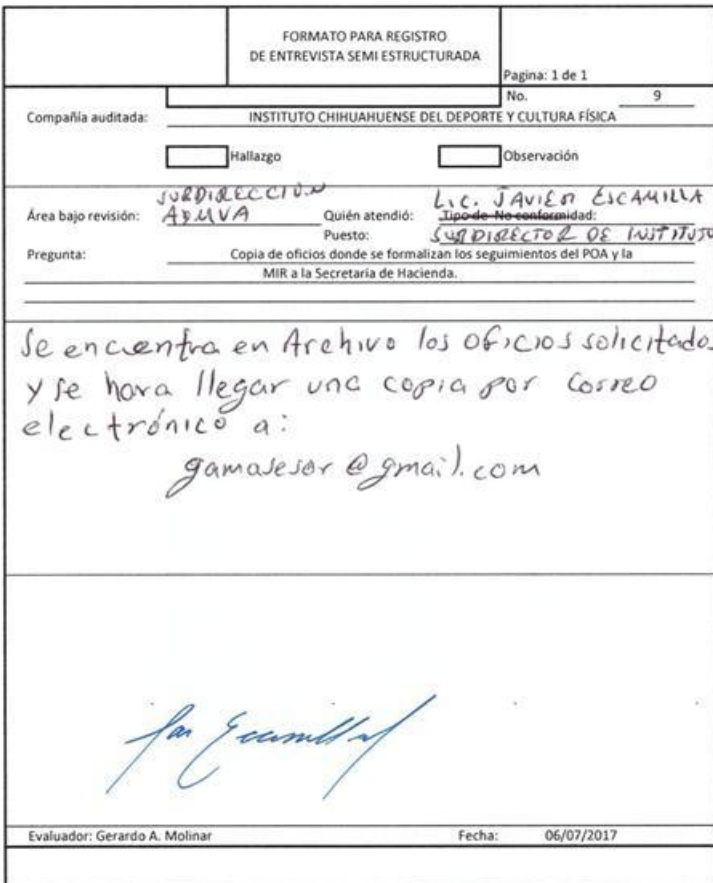 FORMATO PARA REGISTRO
DE ENTREVISTA SEMI ESTRUCTURADA
Pagina: 1 de 1
No. 9
Compañía auditada: INSTITUTO CHIHUAHUENSE DEL DEPORTE Y CULTURA FÍSICA
Hallazgo Observación
SUBDIRECCIÓN
Área bajo revisión: ADMVA Quién atendió: LIC. JAVIER ESCAMILLA
Tipo de No conformidad:
Puesto: SUBDIRECTOR DE INSTITUTO
Pregunta: Copia de oficios donde se formalizan los seguimientos del POA y la
MIR a la Secretaría de Hacienda.
Se encuentra en Archivo los oficios solicitados
y se hara llegar una copia por correo
electrónico a:
gamasesor@gmail.com
Evaluador: Gerardo A. Molinar Fecha: 06/07/2017